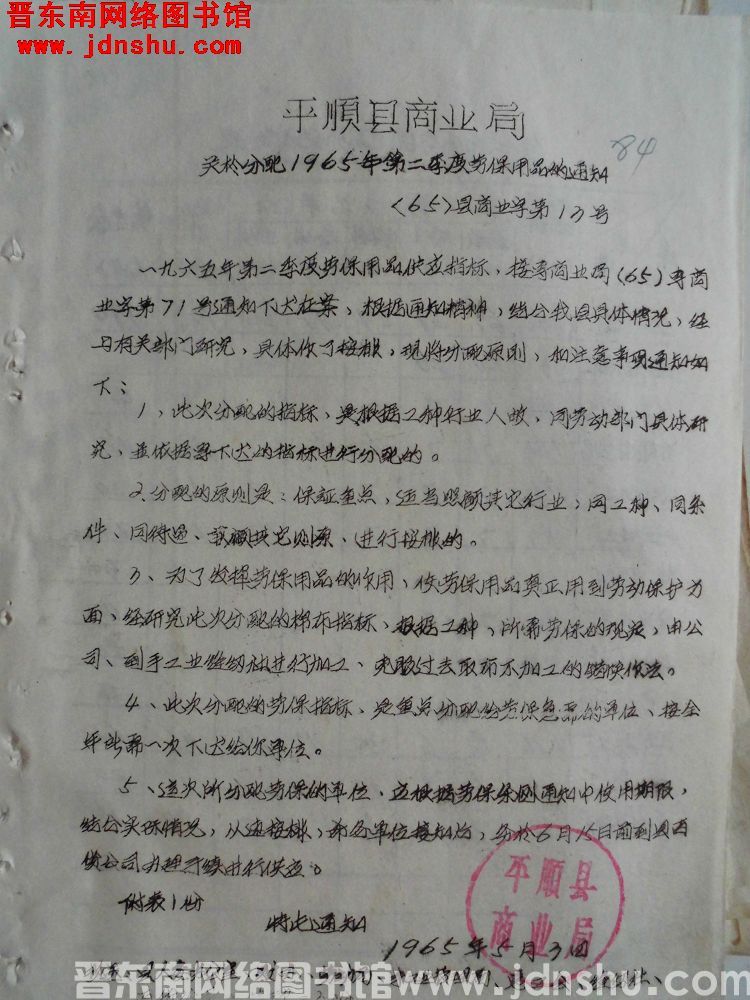 晋东南网络图书馆
www.jdnshu.com
平順县商业局
84
关於分配1965年第二季度劳保用品的通知
<65>县商业字第13号
一九六五年第二季度劳保用品供应指标，接专商业局(65)专商
业字第71号通知下达在案、根据通知精神，结合我县具体情况，经
与有关部门研究，具体作了按排，现将分配原则，和注意事项通知如
下：
1、此次分配的指标、是根据工种行业人数，同劳动部门具体研
究，並依据专下达的指标进行分配的。
2.分配的原则是：保証重点，适当照顾其它行业；同工种、同条
件、同待遇、兼顾其它则原、进行按排的。
3、为了发挥劳保用品的作用、使劳保用品真正用到劳动保护方
面、经研究此次分配的棉布指标、根据工种、所需劳保的规定，由公
司、到手工业缝纫社进行加工、克服过去取布不加工的错误作法。
4、此次分配的劳保指标、是重点分配给劳保急需的单位、按全
年所需一次下达给你单位。
5、这次所分配劳保的单位、应根据劳保条例通知中使用期限，
结合实际情况，从速按排，希各单位接知后，务於6月15日前到县百
货公司办理手续进行供应。
附表1份
特此通知
1965年5月3日
平順县
商业局
晋东南网络图书馆 www.jdnshu.com